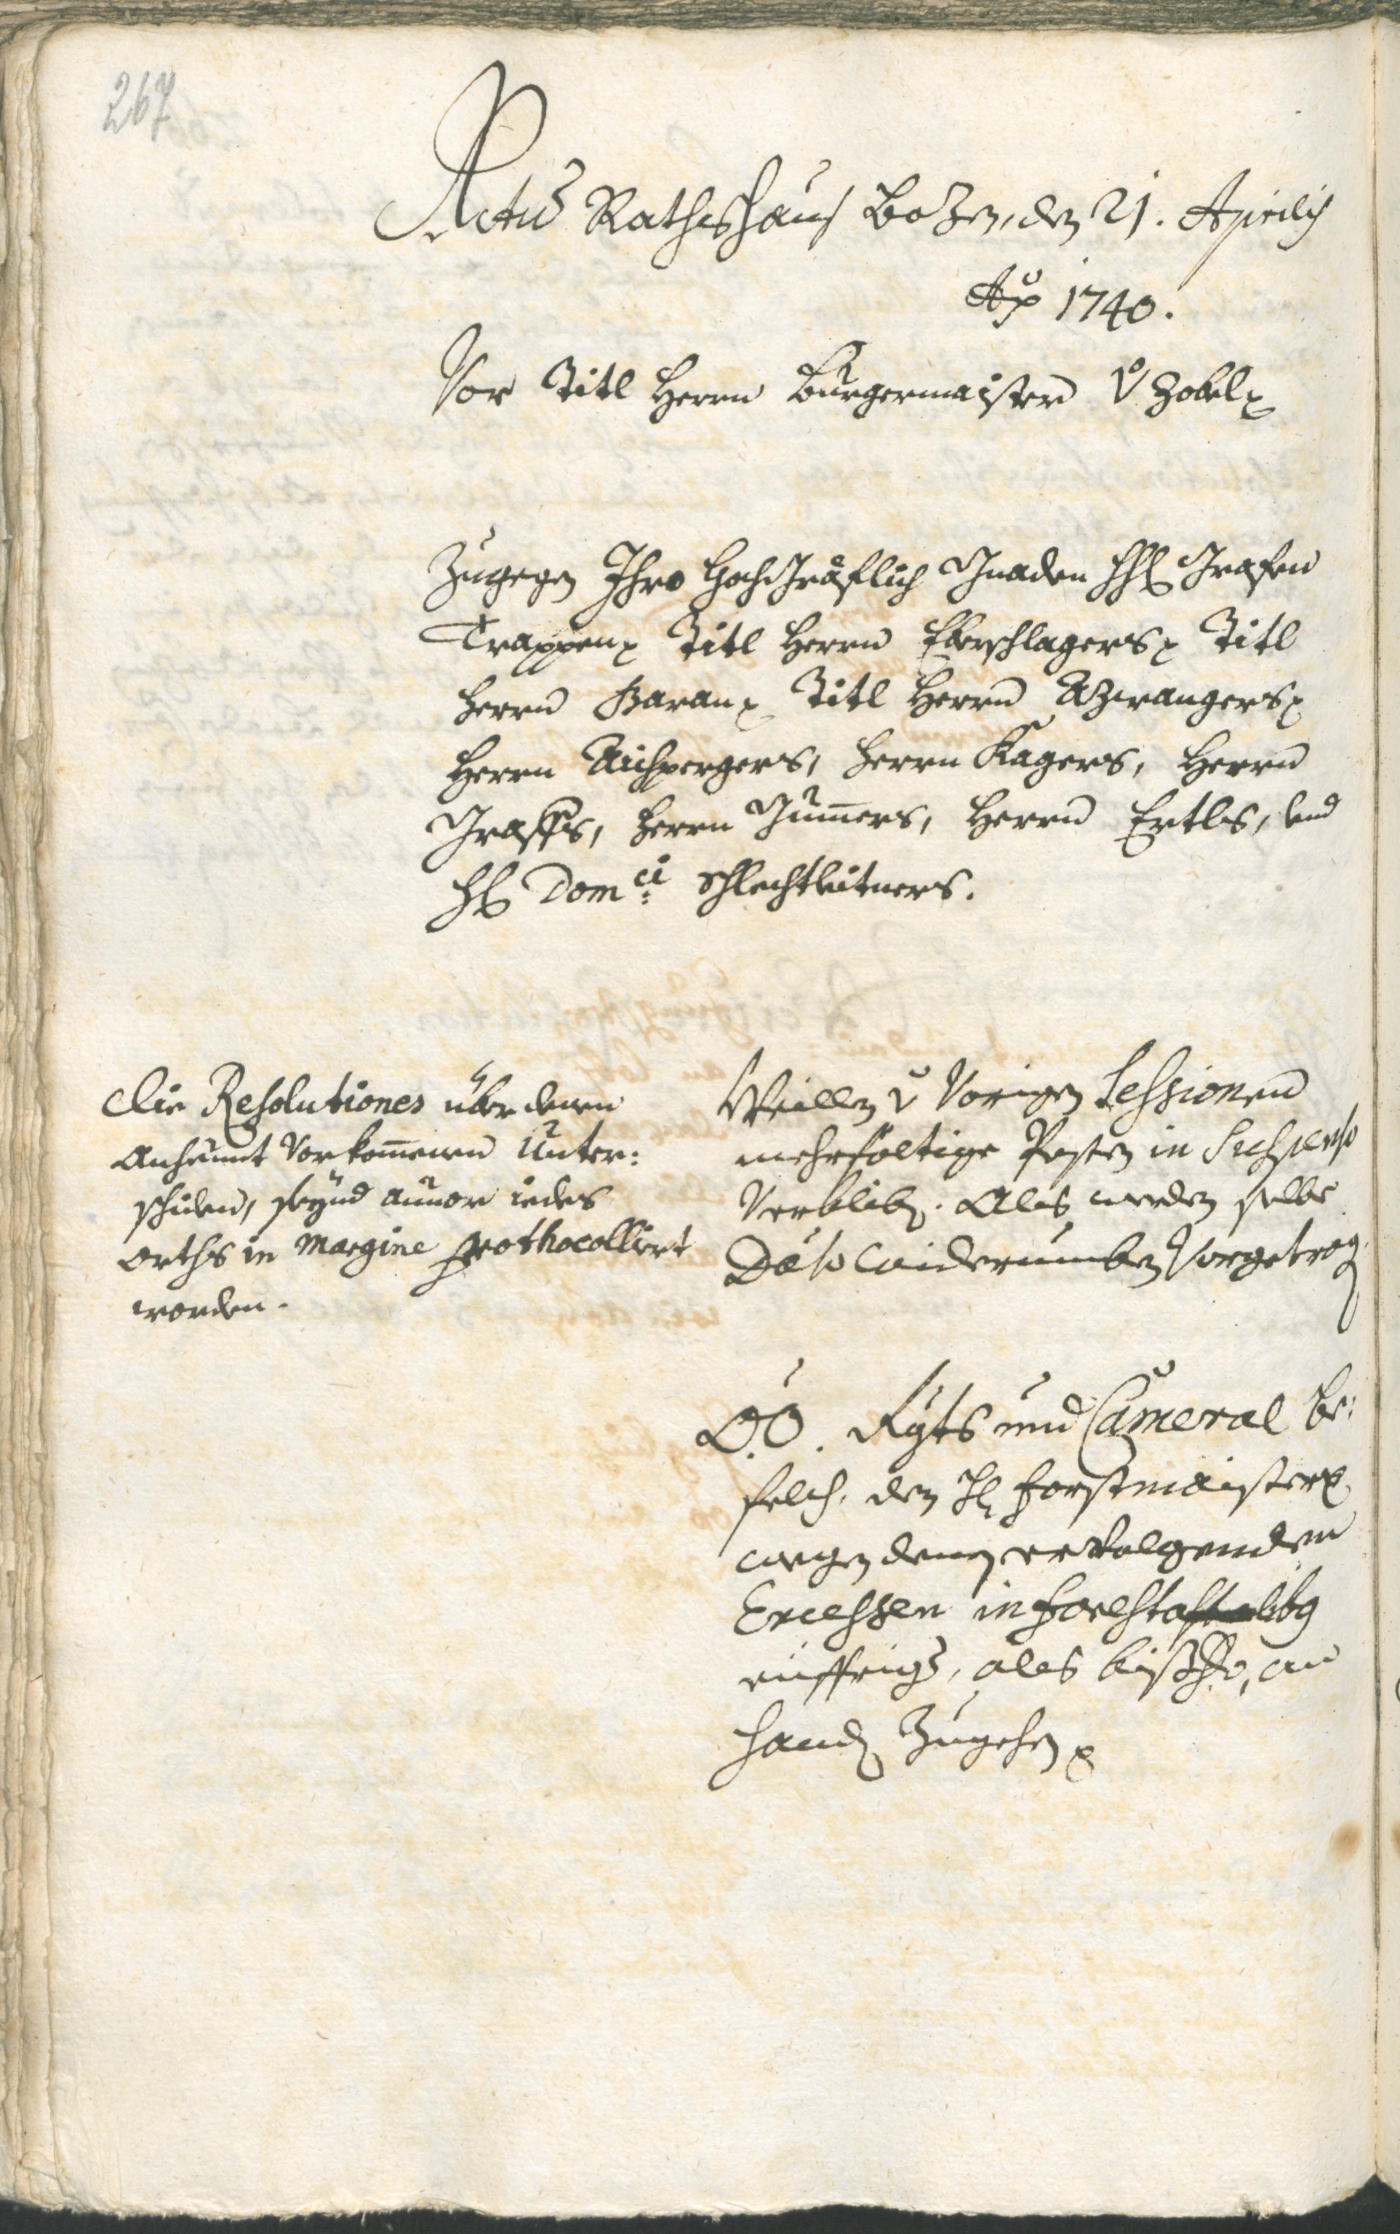 267
Actus Rathshaus Bozen, den 21. Aprilis
Ao 1740.
Vor Titl Herrn Burgermaister v Zobel
Zugegen Ihro Hochgräflich Gnaden HH Grafen
Trappen Titl Herrn Eberschlagers Titl
Herrn Baran Titl Herrn Azwangers
Herrn Aichpergers, Herrn Kagers, Herrn
Graffs, Herrn Gumers, Herrn Ertls, und
H Domci Schlechtleitners.
Die Resolutiones über denen
anheunt vorkommenen Unter:
schiden, seynd annor iedes
orths in margine prothocolliert
worden.
Weillen v vorigen Sessionen
mehrfältige Posten in Suspenso
verbliben. Als werden selbe
Dato widerumben vorgetrag
O.Ö. Rgts und Cameral be:
felch, den H Forstmaister
wegen denen ervolgenden
Excessen in Forst
eiffrigs, als bishero, an
handen zugehen